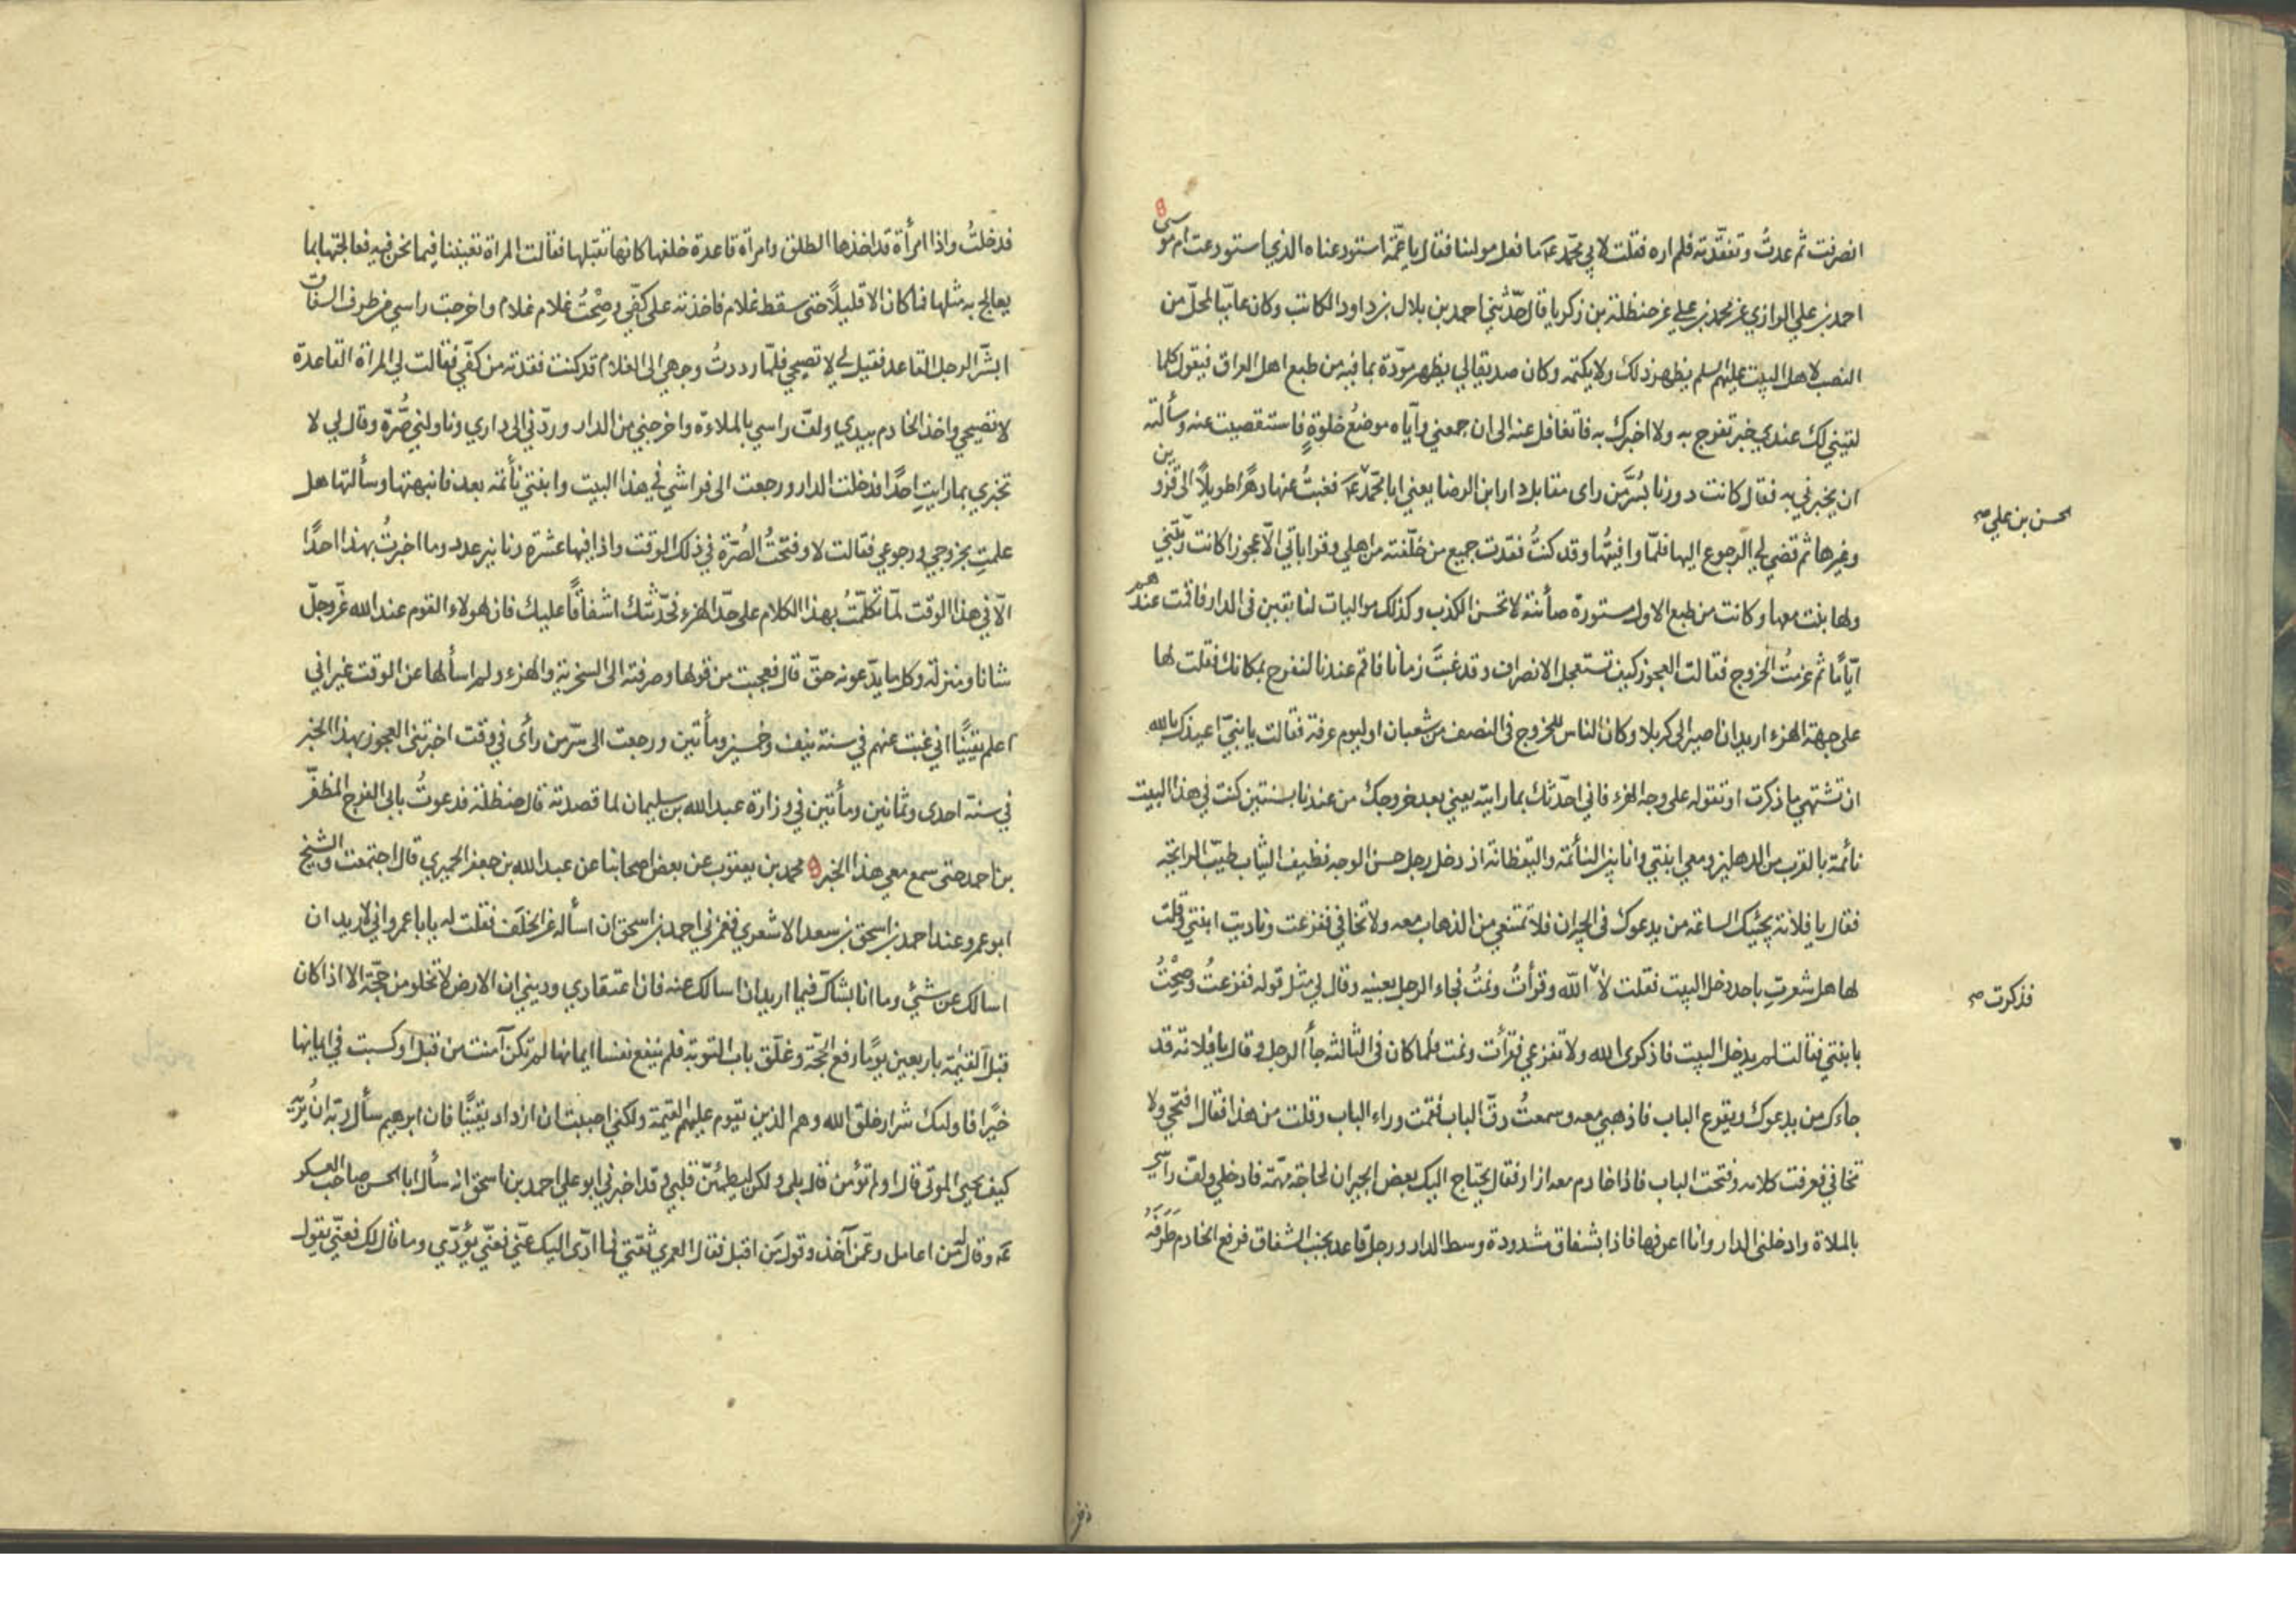 انصرفت ثم عدتُ وتفقّدته فلم اره فقلت لابي محمّد عَ ما فعل مولينا فقال يا عمّة استودعناه الذي استودعت ام موسى
احمد بن علي الرازي عن محمد بن علي عن حنظلة بن زكريا قال حدّثني احمد بن بلال بن داود الكاتب وكان عاميّا بمحلّ من
النصب لاهل البيت عليهم السلم يظهر ذلك ولا يكتمه وكان صديقا لي يظهر مودّة بما فيه من طبع اهل العراق فيقول كلما
لقيني لك عندي خبر تفرح به ولا اخبرك به فاتغافل عنه الى ان جمعني واياه موضعُ خلوةٍ فاستقصيت عنه وسألته
ان يخبرني به فقال كانت دورنا بسُرّ من راى مقابل دار ابن الرضا يعني ابا محمّد عَ فغبتُ عنها دهرًا طويلًا الى قزوين
وغيرها ثم قضي لي الرجوع اليها فلمّا وافيتُها وقد كنتُ فقدت جميع من خلّفته من اهلي وقراباتي الّا عجوزا كانت ربّتني
ولها بنت معها وكانت من طبع الاول مستورة صائنة لا تحسن الكذب وكذلك مواليات لنا بقين في الدار فاقمت عندهم
ايّامًا ثم عزمتُ الخروج فقالت العجوز كيف تستعجل الانصراف وقد غبتَ زمانا فاقم عندنا لنفرح بمكانك فقلت لها
على جهة الهزء اريد ان اصير الى كربلا وكان الناس للخروج في النصف من شعبان او ليوم عرفة فقالت يا بنيّ اعيذك بالله
ان تشتهي ما ذكرت او تقوله على وجه الهزء فاني احدّثك بما رايته يعني بعد خروجك من عندنا بسنتين كنت في هذا البيت
نائمة بالقرب من الدهليز ومعي ابنتي وانا بين النائمة واليقظانة اذ دخل رجل حسن الوجه نظيف الثياب طيّب الرايحة
فقال يا فلانة يجيئك الساعة من يدعوك في الجيران فلا تمتنعي من الذهاب معه ولا تخافي ففزعت وناديت ابنتي وقلت
لها هل شعرتِ باحد دخل البيت فقلت لا الله وقرأتُ ونمتُ فجاء الرجل بعينه وقال لي مثل قوله ففزعتُ وصِحْتُ
بابنتي فقالت لم يدخل البيت فاذكرى الله ولا تفزعي فقرأت ونمت فلما كان في الثالثه جأ الرجل وقال يا فلانة قد
جاءك من يدعوك ويقرع الباب فاذهبي معه وسمعتُ دقّ الباب فقمت وراء الباب وقلت من هذا فقال افتحي ولا
تخافي فعرفت كلامه وفتحت الباب فاذا خادم معه ازار فقال يحتاج اليك بعض الجيران لحاجة مهمّة فادخلي ولفّ رأسي
بالملاة وادخلني الدار وانا اعرفها فاذا بشقاق مشدودة وسط الدار ورجل قاعد بجنب الشقاق فرفع الخادم طَرَفَهُ
الحسن بن علي صح
فذكرت صح
فدخلتُ واذا امرأة قد اخذها الطلق وامرأة قاعدة خلفها كانها تقبّلها فقالت المراة تعيننا فيما نحن فيه فعالجتها بما
يعالج به مثلها فما كان الا قليلًا حتى سقط غلام فاخذته على كفّي وصِحْتُ غلام غلام واخرجت راسي من طرف الشقاق
ابشّر الرجل القاعد فقيل لي لا تصيحي فلمّا رددتُ وجهي الى الغلام قد كنت فقدته من كفّي فقالت لي المراة القاعدة
لا تصيحي واخذ الخادم بيدي ولفّ راسي بالملاءة واخرجني من الدار وردّني الى داري وناولني صُرّة وقال لي لا
تخبري بما رايتِ احدًا فدخلت الدار ورجعت الى فراشي في هذا البيت وابنتي نائمة بعد فانبهتها وسألتها هل
علمتِ بخروجي ورجوعي فقالت لا وفتحْتُ الصُرّة في ذلك الوقت واذا فيها عشرة دنانير عدد وما اخبرتُ بهذا احدًا
الّا في هذا الوقت لمّا تكلّمتَ بهذا الكلام على حدّ الهزء فحدّثتك اشفاقًا عليك فان لهولاء القوم عند الله عزّ وجلّ
شانا ومنزلة وكل ما يدّعونه حقّ قال فعجبت من قولها وصرفته الى السخرية والهزء ولم اسألها عن الوقت غير اني
اعلم يقينًا اني غبت عنهم في سنة نيف وخمسين ومأتين ورجعت الى سرّ من رأى في وقت اخبرتني العجوز بهذا الخبر
في سنة احدى وثمانين ومأتين في وزارة عبد الله بن سليمان لما قصدته قال حنظلة فدعوتُ بابي الفرج المظفّر
بن احمد حتى سمع معي هذا الخبر محمد بن يعقوب عن بعض اصحابنا عن عبد الله بن جعفر الحميري قال اجتمعت والشيخ
ابو عمرو عند احمد بن اسحق بن سعد الاشعري فغمزني احمد بن اسحق ان اساله عن الخلَف فقلت له يا با عمرو اني لاريد ان
اسالك عن شئ وما انا بشاكّ فيما اريد ان اسالك عنه فان اعتقادي وديني ان الارض لا تخلو من حجّة الا اذا كان
قبل القيٰمة باربعين يومًا رفع الحجّة وغلّق باب التوبة فلم ينفع نفسا ايمانها لم تكن آمنت من قبل او كسبت في ايمانها
خيرًا فاولئك شرار خلق الله وهم الذين تقوم عليهم القيمة ولكني احببت ان ازداد يقينًا فان ابرهيم سأل ربّه ان يُريَه
كيف يحيي الموتى قال اولم تؤمن قال بلى ولكن ليطمئنّ قلبي وقد اخبرني ابو علي احمد بن اسحق انه سأل ابا الحسن صاحب العسكر
عَ وقال من اعامل وعمّن آخذ وقول مَن اقبل فقال العمري ثقتي فما ادّى اليك عنّي فعنّي يؤدّي وما قال لك فعنّي يقول